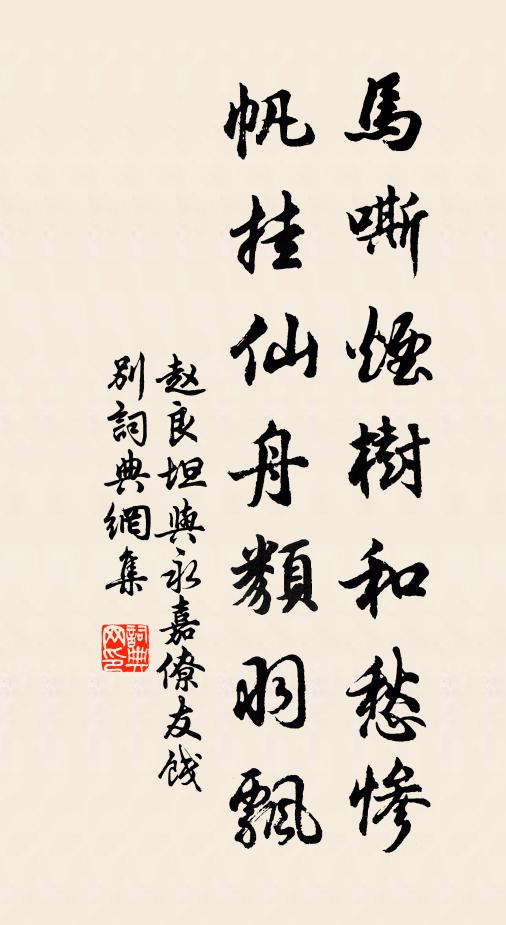 馬嘶煙樹和愁慘
帆挂仙舟類羽飄
赵良坦與永嘉僚友餞
别詞典網集
詞典
网印